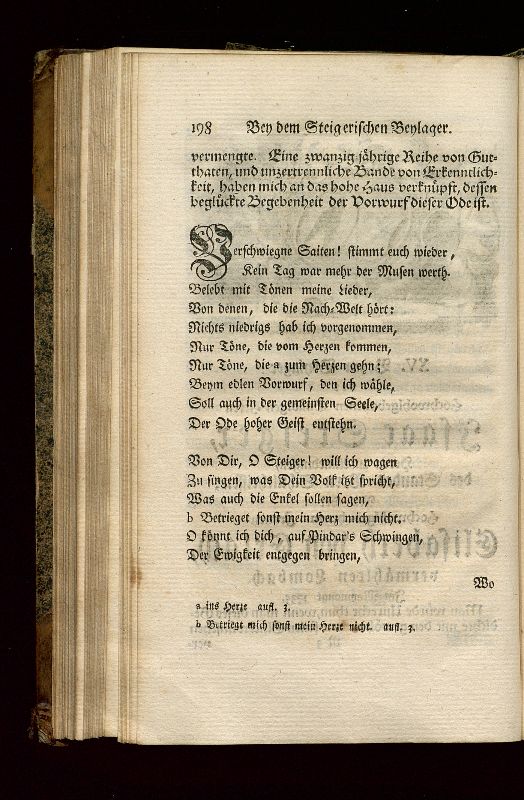 198 Bey dem Steigerischen Beylager.
vermengte. Eine zwanzig-jährige Reihe von Gut-
thaten, und unzertrennliche Bande von Erkenntlich-
keit, haben mich an das hohe Haus verknüpft, dessen
beglückte Begebenheit der Vorwurf dieser Ode ist.
Verschwiegne Saiten! stimmt euch wieder,
Kein Tag war mehr der Musen werth.
Belebt mit Tönen meine Lieder,
Von denen, die die Nach-Welt hört:
Nichts niedrigs hab ich vorgenommen,
Nur Töne, die vom Herzen kommen,
Nur Töne, die a zum Herzen gehn;
Beym edlen Vorwurf, den ich wähle,
Soll auch in der gemeinsten Seele,
Der Ode hoher Geist entstehn.
Von Dir, O Steiger! will ich wagen
Zu singen, was Dein Volk itzt spricht,
Was auch die Enkel sollen sagen,
b Betrieget sonst mein Herz mich nicht.
O könnt ich dich, auf Pindar's Schwingen,
Der Ewigkeit entgegen bringen,
Wo
a ins Herze aufl. 3.
b Betriegt mich sonst mein Herze nicht. aufl. 3.